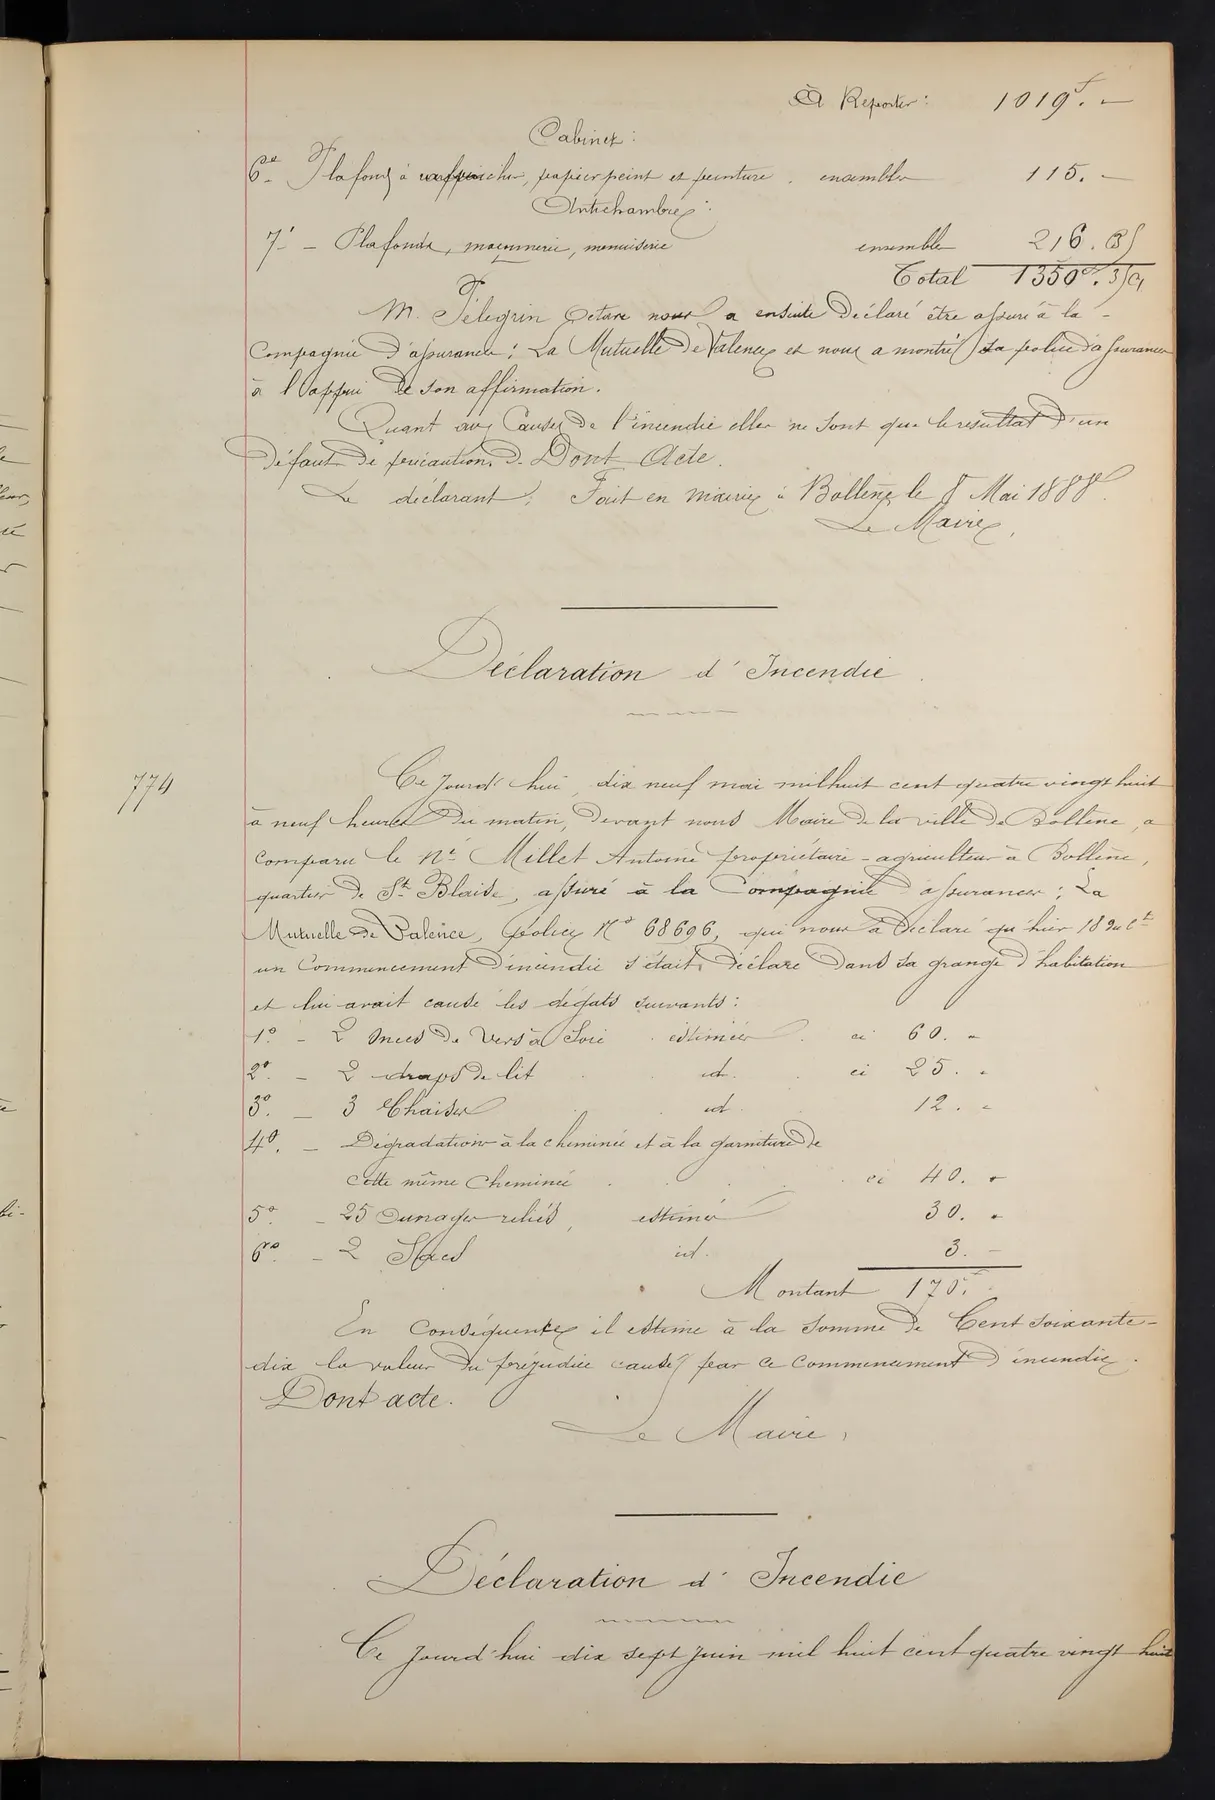 À Reporter : 1019f. –
Cabinet :
6o – Plafond à rafraichir, papier peint et peinture . ensemble 115. –
Antichambre :
7o – Plafonds, maçonnerie, menuiserie ensemble 216. 35
Total 1350f. 35
M. Pélegrin Octave nous a ensuite Déclaré être assuré à la –
Compagnie D'assurances : La Mutuelle De Valence et nous a montré sa police d'assurances
à l'appui De son affirmation.
Quant aux Causes De l'incendie elles ne sont que le résultat D'un
Défaut De précautions. Dont Acte.
Le déclarant, Fait en mairie à Bollène le 8 Mai 1888.
Le Maire,
Déclaration d'Incendie
774
Ce jourd'hui, dix neuf mai mil huit cent quatre vingt huit
à neuf heures Du matin, Devant nous Maire De la ville De Bollène, a
Comparu le Né Millet Antoine propriétaire – agriculteur à Bollène,
quartier De St Blaise, assuré à la Compagnie d'assurances : La
Mutuelle De Valence, police No 68696, qui nous a Déclaré qu'hier 18 du Ct
un Commencement D'incendie s'était Déclaré Dans sa grange D'habitation
et lui avait causé les dégats suivants :
1o. – 2 onces De Vers à Soie . estimées . ci 60. –
2o. – 2 draps De lit . id. . ci 25. –
3o. – 3 Chaises . id . 12. –
4o. – Dégradation à la cheminée et à la garniture De
cette même Cheminée . . . ci 40. –
5o. – 25 Ouvrages reliés, estimés 30. –
6o. – 2 Sacs id. 3. –
Montant 170f.
En Conséquence il estime à la somme De Cent soixante –
dix la valeur Du préjudice causé par ce commencement D'incendie.
Dont acte.
Le Maire,
Déclaration d'Incendie
Ce jourd'hui dix sept juin mil huit cent quatre vingt huit